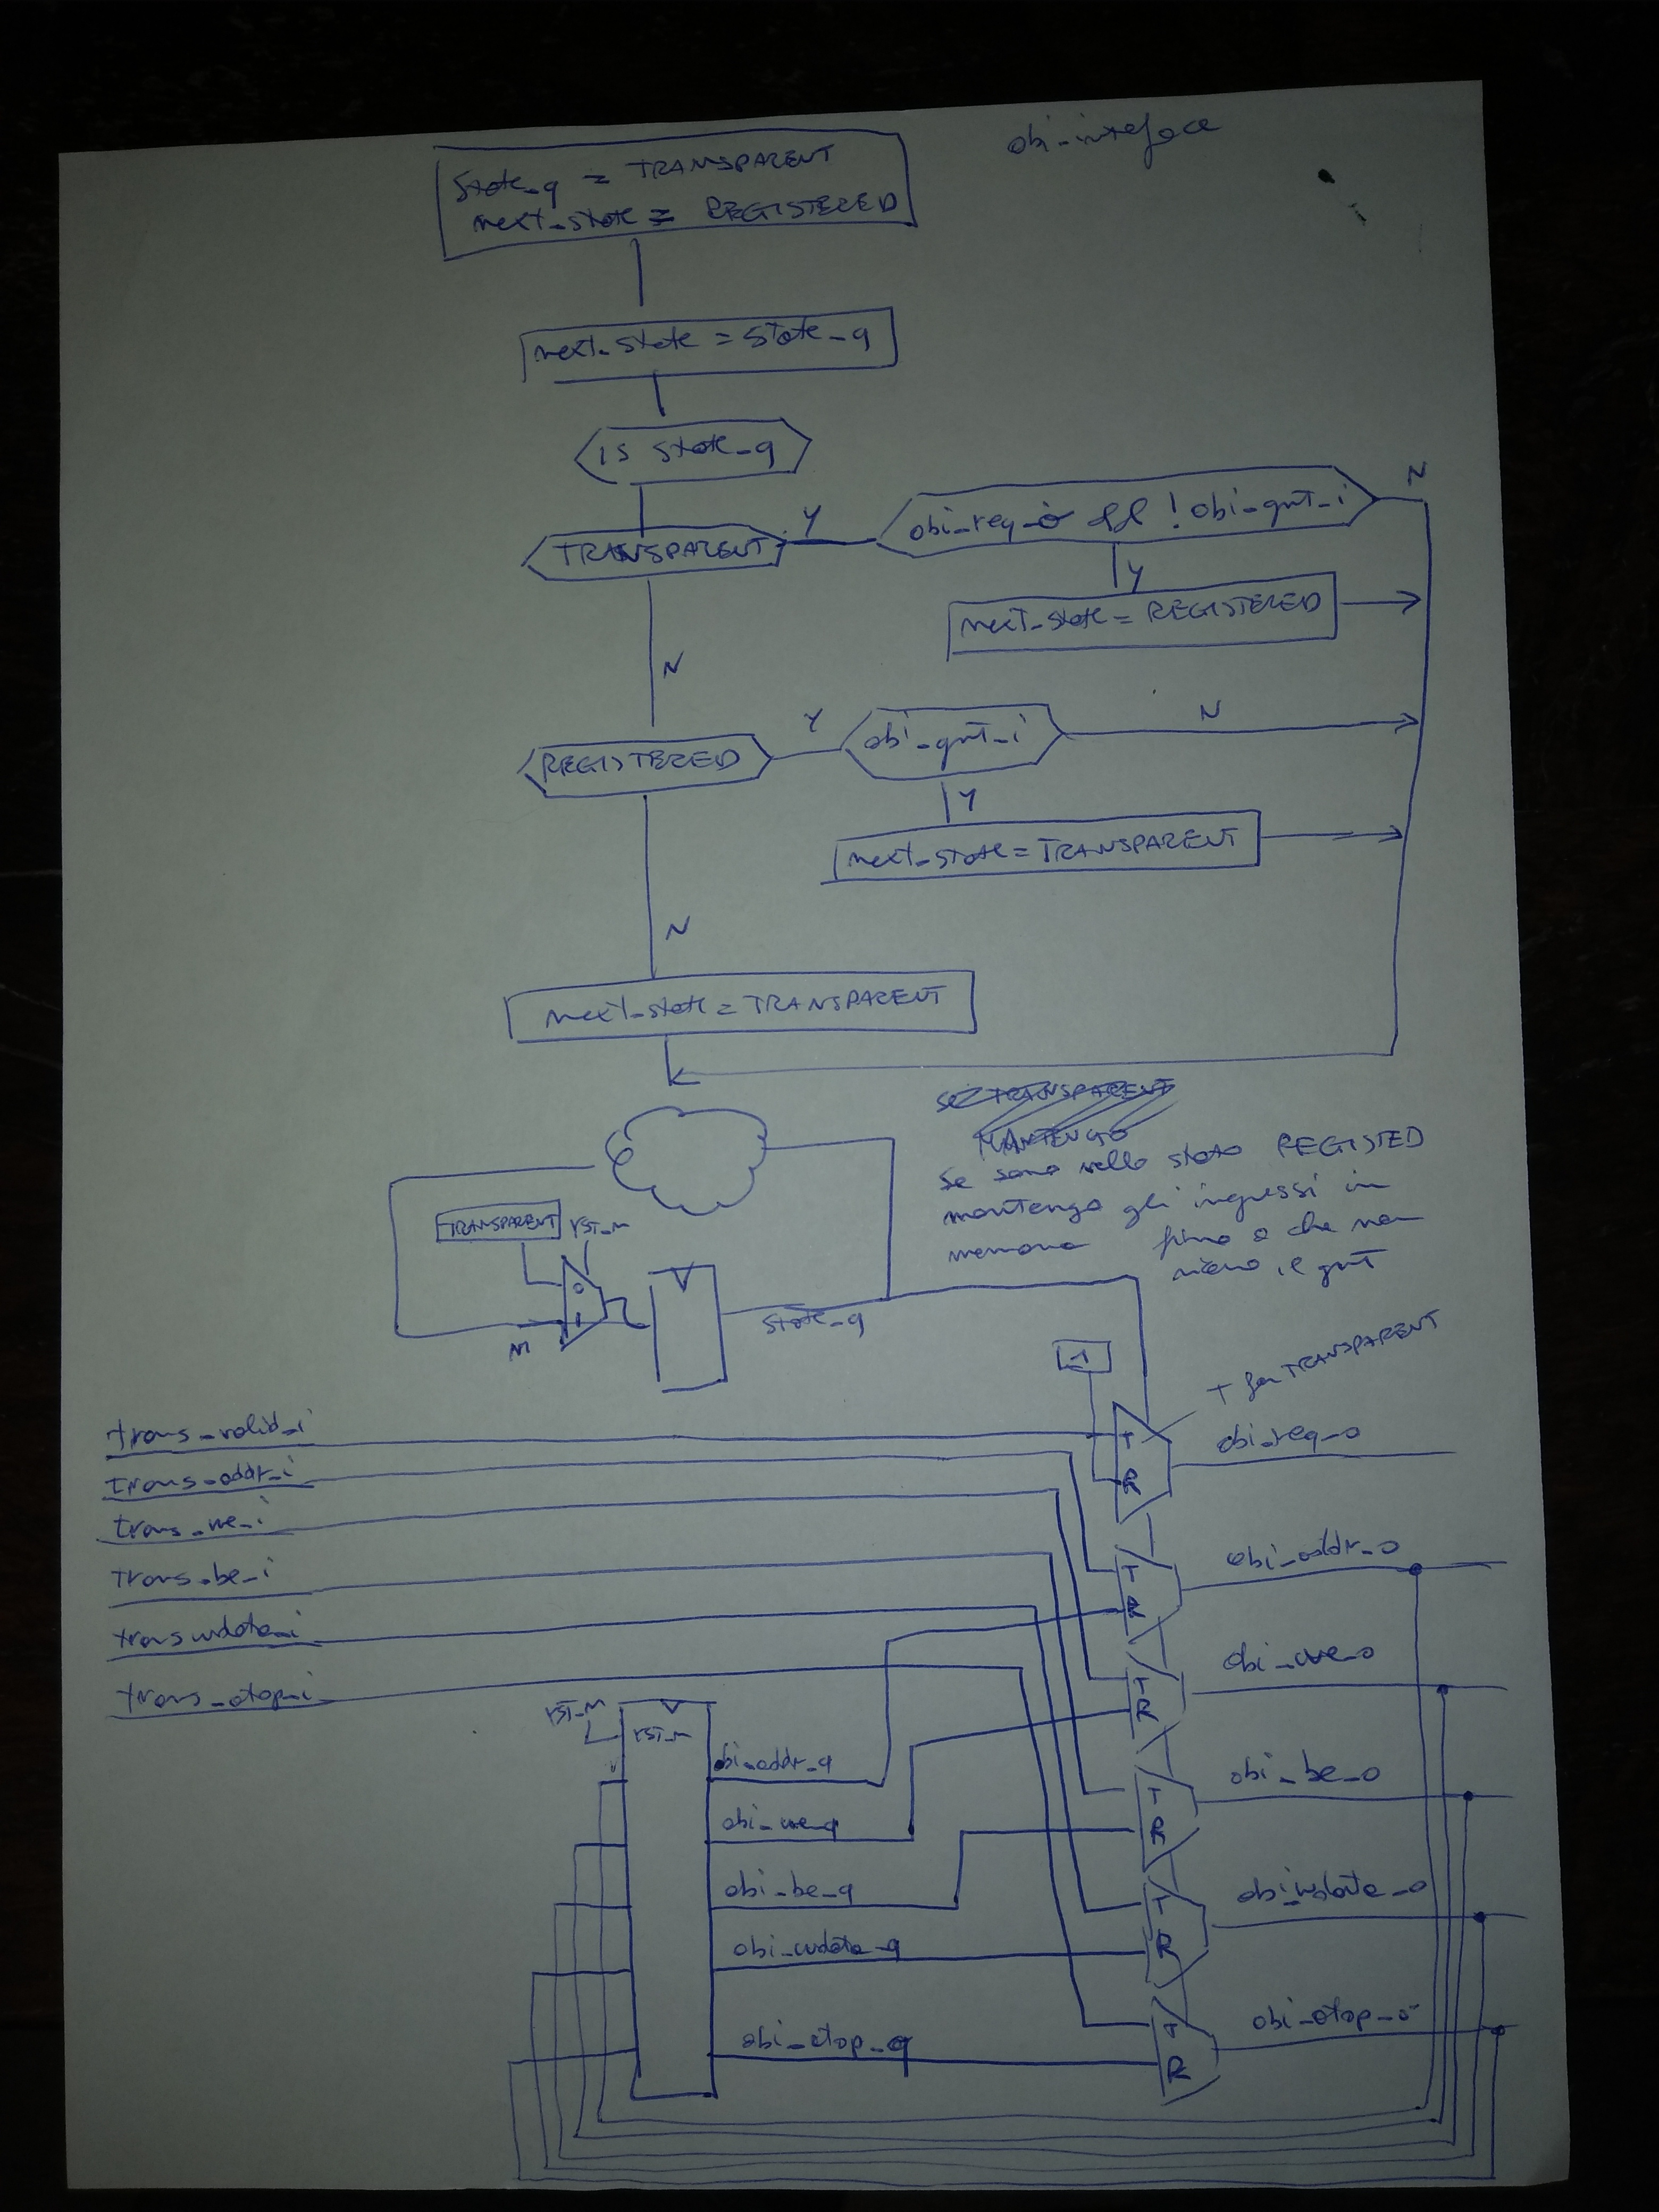 obi-inteface
State_q = TRANSPARENT
next_state = REGISTERED
next_state = state_q
is state_q
TRANSPARENT
Y
obi_req_o && !obi_gnt_i
N
Y
next_state = REGISTERED
N
REGISTERED
Y
obi_gnt_i
N
Y
next_state = TRANSPARENT
N
next_state = TRANSPARENT
SE TRANSPARENT
MANTENGO
se sono nello stato REGISTED
mantengo gli ingressi in
memoria fino a che non
gnt
TRANSPARENT
rst_n
0
1
state_q
1
T for TRANSPARENT
trans_valid_i
T
R
obi_req_o
trans_addr_i
trans_we_i
trans_be_i
trans wdata_i
trans_atop_i
T
R
obi_addr_o
T
R
obi_we_o
rst_n
rst_n
obi_addr_q
obi_we_q
obi_be_q
obi_wdata_q
obi_atop_q
T
R
obi_be_o
T
R
obi_wdata_o
T
R
obi_atop_o